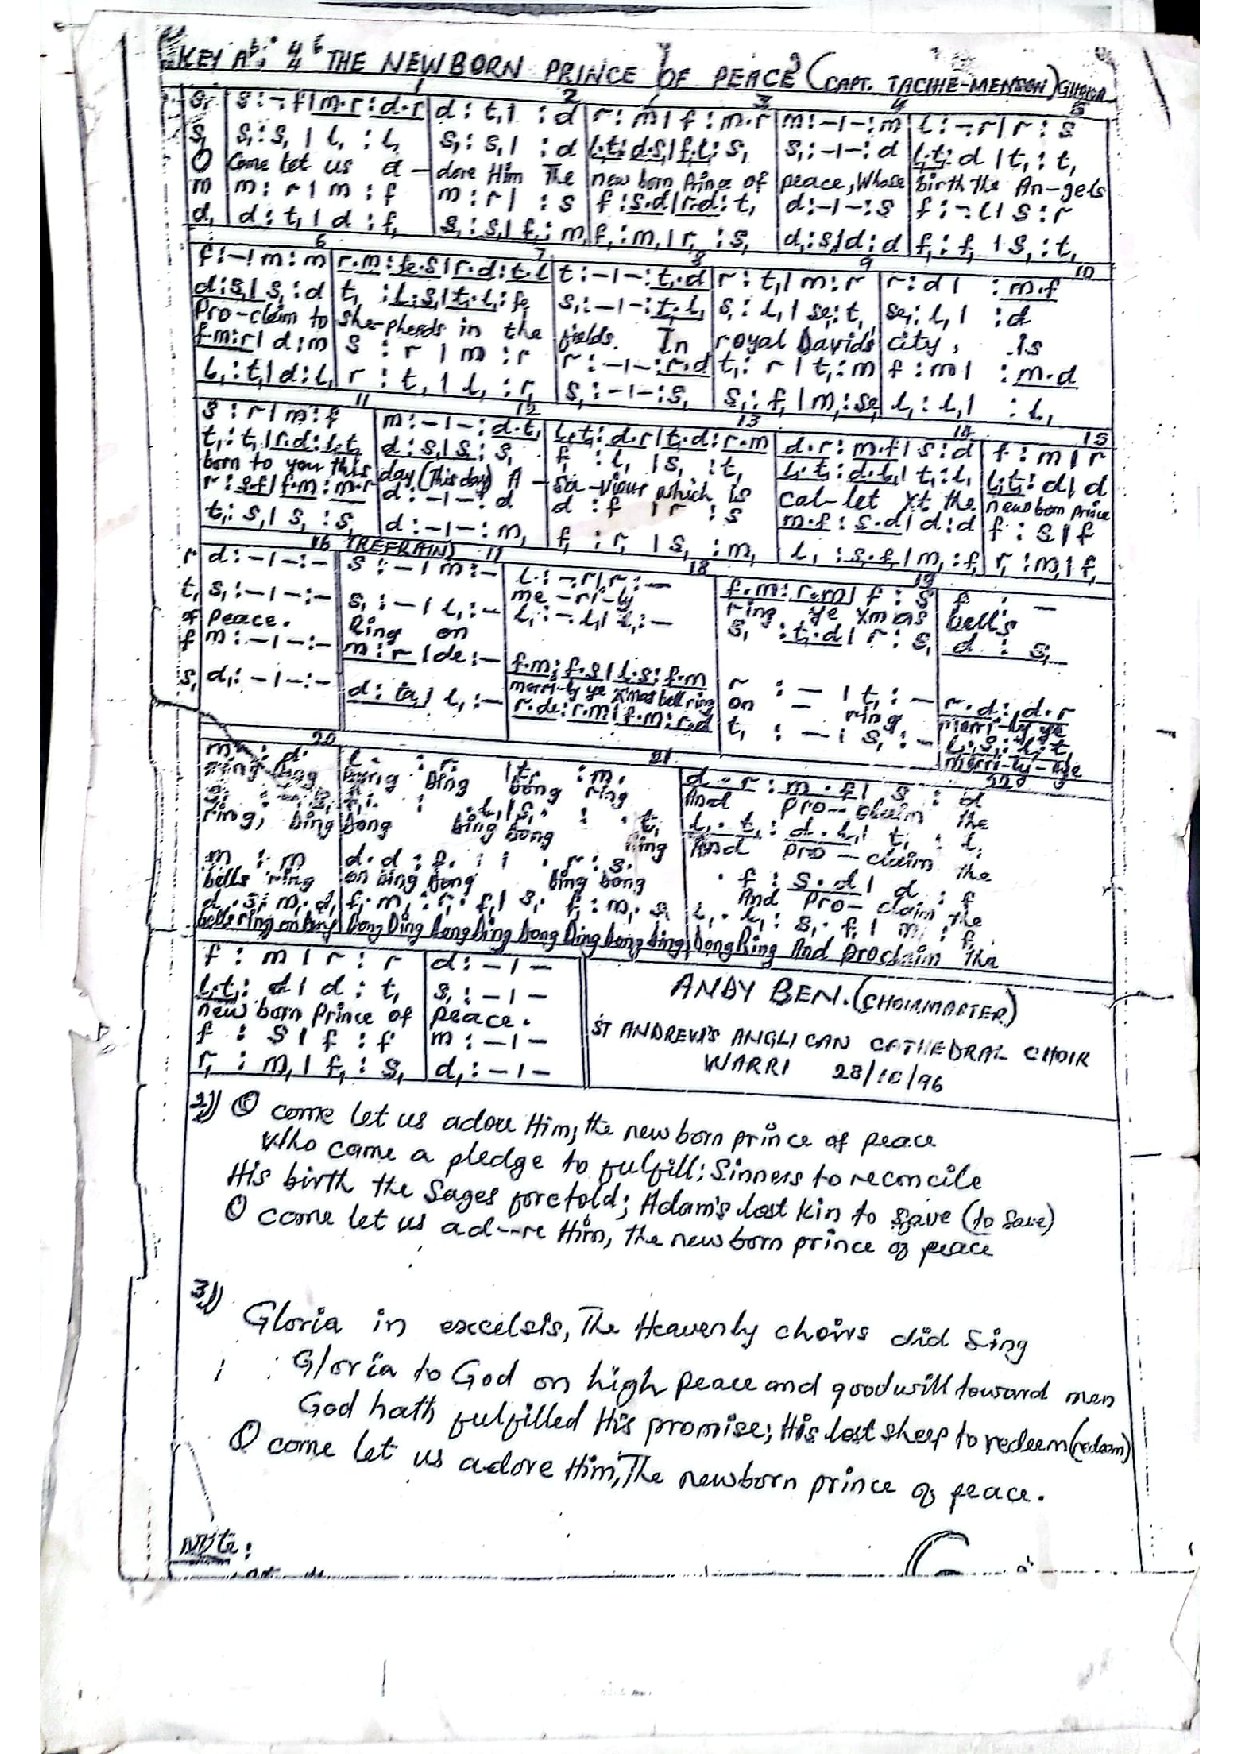 KEY Ab: 4/4 THE NEWBORN PRINCE OF PEACE (CAPT. TACHIE-MENSON) GHANA
1 2 3 4 5
s, | s : -. f | m.r : d.r | d : t, | : d | r : m | f : m.r | m : - | - : m | l : -. r | r : s
s, | s, : s, | l, : l, | s, : s, | : d | l,.t, : d.s, | f,.l, : s, | s, : - | - : d | l,.t, : d | t, : t,
O Come let us a - dore Him The new born Prince of peace, Whose birth the An-gels
m | m : r | m : f | m : r | : s | f : s.d | r.d : t, | d : - | - : s | f : -. l | s : r
d, | d : t, | d : f, | s, : s, | f, : m, | f, : m, | r, : s, | d, : s, | d : d | f, : f, | s, : t,
6 7 8 9 10
f : - | m : m | r.m : fe.s | r.d : t.l | t : - | - : t.d | r : t, | m : r | r : d | : m.f
d : s, | s, : d | t, : l,.s, | t,.l, : fe, | s, : - | - : t,.l, | s, : l, | se, : t, | se, : l, | : d
Pro-claim to she-pherds in the fields. In royal Davids city, is
f.m : r | d : m | s : r | m : r | r : - | - : r.d | t, : r | t, : m | f : m | : m.d
l, : t, | d : l, | r : t, | l, : r, | s, : - | - : s, | s, : f, | m, : se, | l, : l, | : l,
11 12 13 14 15
s : r | m : f | m : - | - : d.t, | l,.t, : d.r | t,.d : r.m | d.r : m.f | s : d | f : m | r
t, : t, | r.d : l,.t, | d : s, | s, : s, | f, : l, | s, : t, | l,.t, : d.l, | t, : l, | l,.t, : d | d
born to you this day (This day) A - Sa - viour which is cal-let Xt the newborn prince
r : s.f | f.m : m.r | d : - | - : d | d : f | r : s | m.f : s.d | d : d | f : s | f
t, : s, | s, : s, | d : - | - : m, | f, : r, | s, : m, | l, : s,.f, | m, : f, | r, : m, | f,
16 (REFRAIN) 17 18 19
r | d : - | - : - | s : - | m : - | l : -. r | r : - | f.m : r.m | f : s | f : -
me - ri - ly ring ye Xmas bells
t, | s, : - | - : - | s, : - | l, : - | l, : -. l, | l, : - | s, : t,.d | r : s, | d : s,
of peace. Ring on
f | m : - | - : - | m : r | de : - | f.m : f.s | l.s : f.m | r : - | t, : - | r.d : d.r
merri-ly ye Xmas bell ring on - ring merri-ly ye
s, | d, : - | - : - | d : ta, | l, : - | r.de : r.m | f.m : r.d | t, : - | s, : - | l,.s, : l,.t,
merri-ly-ye
20 21 22
ring ding dong Ding bong ring And pro-claim the
ring, bing bong bing bong ring And pro-claim the
m : m
bells ring on Ding Dong bing bong And pro-claim the
bells ring on bing bong Ding bong bing bong Ding bong bing bong Ring And proclaim the
f : m | r : r | d : - | -
l,.t, : d | d : t, | s, : - | -
new born Prince of peace.
f : s | f : f | m : - | -
r, : m, | f, : s, | d, : - | -
ANDY BEN. (CHOIRMASTER)
ST ANDREW'S ANGLICAN CATHEDRAL CHOIR
WARRI 28/10/96
2)) O come let us adore Him; the new born prince of peace
Who came a pledge to fulfill; Sinners to reconcile
His birth the Sages foretold; Adam's lost kin to save (to save)
O come let us ad--re Him, the new born prince of peace
3))
Gloria in excelsis, The Heavenly choirs did sing
Gloria to God on high peace and goodwill toward men
God hath fulfilled His promise; His lost sheep to redeem (redeem)
O come let us adore Him, The newborn prince of peace.
Note: